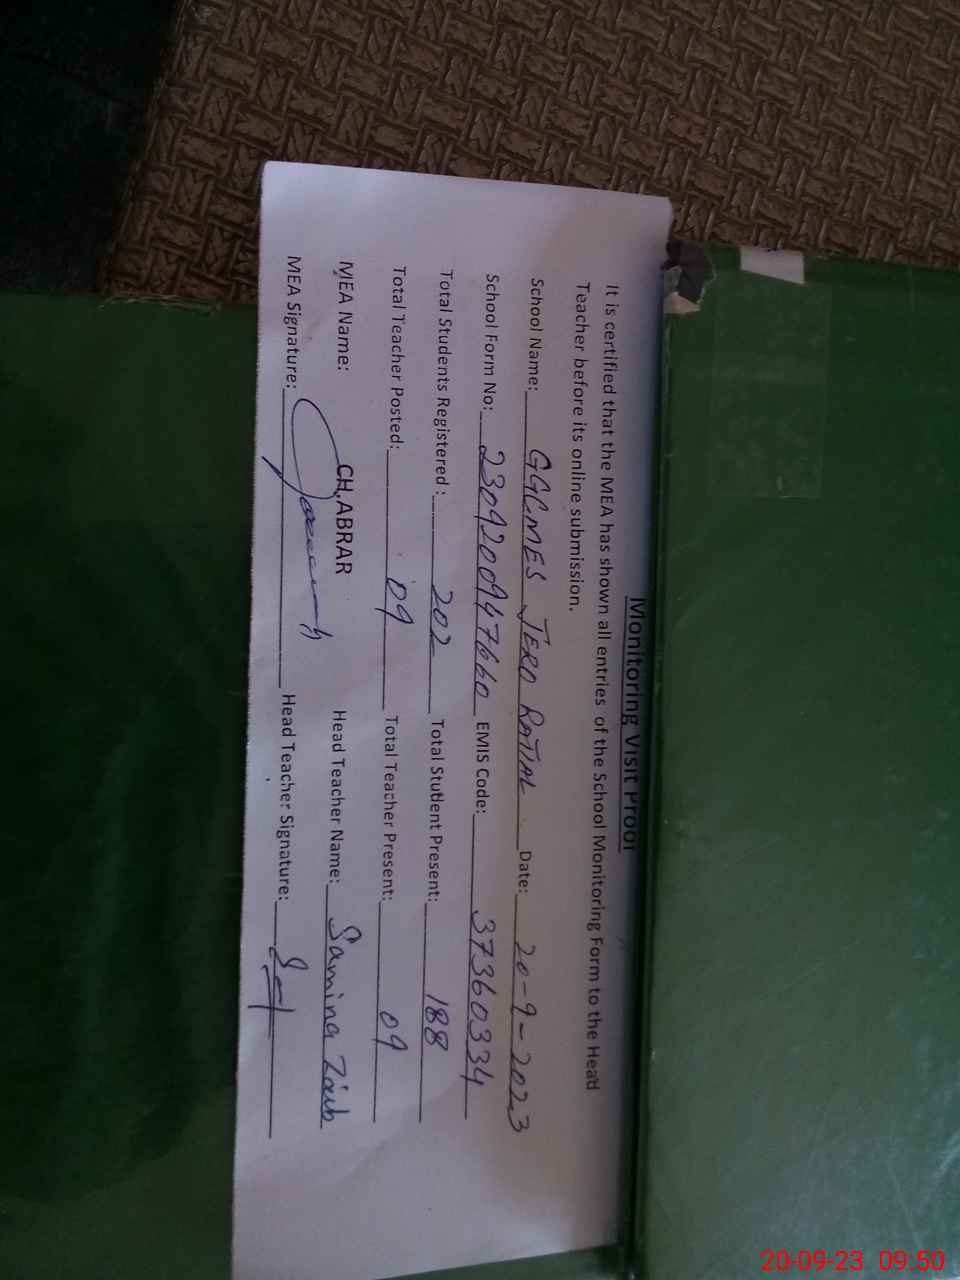 Monitoring Visit Proof
It is certified that the MEA has shown all entries of the School Monitoring Form to the Head
Teacher before its online submission.
School Name: GGCMES JERO RATIAL Date: 20-9-2023
School Form No: 2309200947660 EMIS Code: 37360334
Total Students Registered: 202 Total Student Present: 188
Total Teacher Posted: 09 Total Teacher Present: 09
MEA Name: CH,ABRAR Head Teacher Name: Samina Zaib
MEA Signature: Head Teacher Signature:
20-09-23 09:50